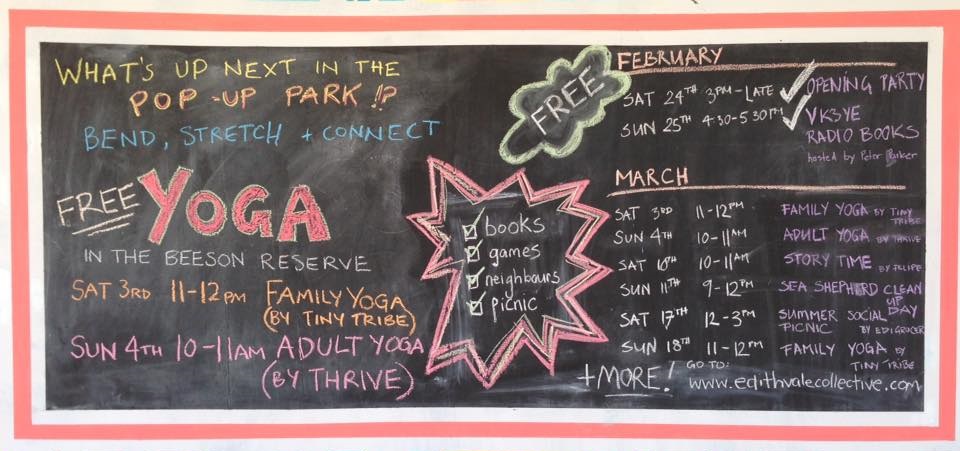 WHAT'S UP NEXT IN THE
POP-UP PARK!?
BEND, STRETCH + CONNECT
FREE YOGA
IN THE BEESON RESERVE
SAT 3RD 11-12PM FAMILY YOGA
(BY TINY TRIBE)
SUN 4TH 10-11AM ADULT YOGA
(BY THRIVE)
books
games
neighbours
picnic
FREE
FEBRUARY
SAT 24TH 3PM-LATE OPENING PARTY
SUN 25TH 4:30-5:30PM VK3YE
RADIO BOOKS
hosted by Peter Parker
MARCH
SAT 3RD 11-12PM FAMILY YOGA BY TINY
TRIBE
SUN 4TH 10-11AM ADULT YOGA BY THRIVE
SAT 10TH 10-11AM STORY TIME BY FELIPE
SUN 11TH 9-12PM SEA SHEPHERD CLEAN
UP
DAY
SAT 17TH 12-3PM SUMMER SOCIAL
PICNIC BY EDIGROCER
SUN 18TH 11-12PM FAMILY YOGA BY
TINY TRIBE
+MORE! GO TO:
www.edithvalecollective.com